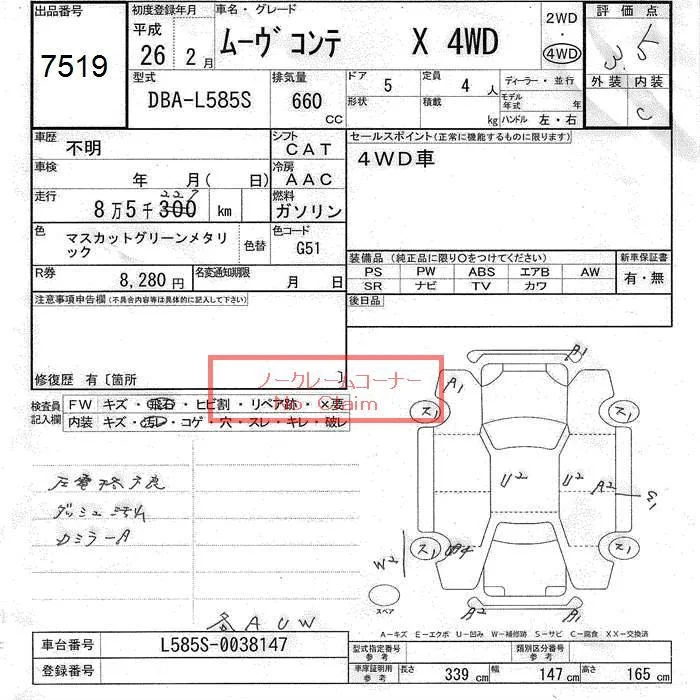 出品番号 初度登録年月 車名・グレード 2WD 評価点
平成
7519 26 年 2 月 ムーヴコンテ X 4WD ・ 4WD 3.5
外装 内装
型式 排気量 ドア 5 定員 4 人 ディーラー・並行
DBA-L585S 660 CC 形状 積載 kg モデル年式 年 C
ハンドル 左・右
車歴 不明 シフト CAT セールスポイント(正常に機能するものに限ります)
車検 年 月( 日) 冷房 AAC 4WD車
走行 8万5千300 km 燃料 ガソリン
227
色 マスカットグリーンメタリック 色替 色コード G51
装備品(純正品に限り○をつけてください) 新車保証書
R券 8,280円 名変通知期限 月 日 PS PW ABS エアB AW 有・無
SR ナビ TV カワ
注意事項申告欄(不具合内容等は具体的に記入して下さい) 後日品
修復歴 有〔箇所 〕
ノークレームコーナー
No Claim
検査員記入欄 FW キズ・飛石・ヒビ割・リペア跡・×要
内装 キズ・汚れ・コゲ・穴・スレ・キレ・破レ
A1
A1
ス1 ス1
U2 U2 A2 E1
ダッシュ汚れ
カミラーA
ス1 ス1
W2
スペア
A2 A1
各AUW
A-キズ E-エクボ U-凹み W-補修跡 S-サビ C-腐食 XX-交換済
車台番号 L585S-0038147 型式指定番号 参考 類別区分番号 参考
登録番号 車庫証明用 参考 長さ 339 cm 幅 147 cm 高さ 165 cm